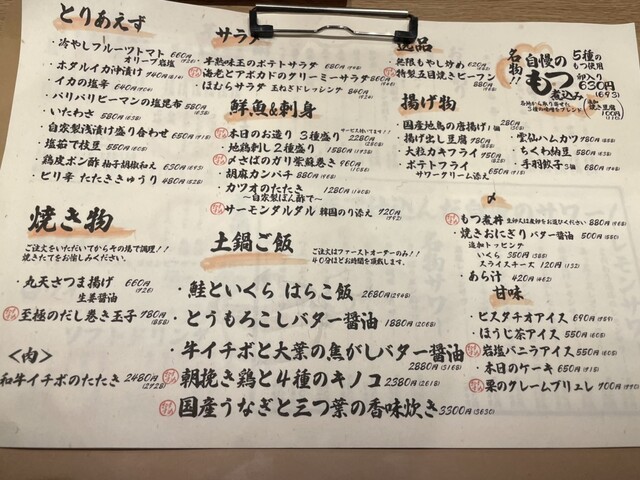 とりあえず
・冷やしフルーツトマト 660円
オリーブ岩塩 (726)
・ホタルイカ沖漬け 740円(814)
・イカの塩辛 640円
・パリパリピーマンの塩昆布 580円
・いたわさ 580円
・自家製浅漬け盛り合わせ 650円
・塩茹で枝豆 550円
・鶏皮ポン酢 柚子胡椒和え 630円(693)
・ピリ辛 たたききゅうり 480円(528)
焼き物
ご注文をいただいてからその場で調理！！
焼きたてをお愉しみください。
・丸天さつま揚げ 660円
生姜醤油 (726)
至極のだし巻き玉子 780円
(858)
〈肉〉
和牛イチボのたたき 2480円
サラダ
・半熟味玉のポテトサラダ 680円
海老とアボカドのクリーミーサラダ
・ほむらサラダ 玉ねぎドレッシング 840円
鮮魚&刺身
本日のお造り 3種盛り 2280円
・地鶏刺し2種盛り 1280円
・〆さばのガリ紫蘇巻き 960円
・胡麻カンパチ 880円
・カツオのたたき 1280円
〜自家製ぽん酢で〜
サーモンタルタル 韓国のり添え 720円
(792)
土鍋ご飯
ご注文はファーストオーダーのみ！！
40分ほどお時間を頂戴します。
・鮭といくら はらこ飯 2680円
・とうもろこしバター醤油 1880円
・牛イチボと大葉の焦がしバター醤油
2880円
朝挽き鶏と4種のキノコ 2380円
国産うなぎと三つ葉の香味炊き 3300円(3630)
逸品
・無限もやし炒め 620円
特製五目焼きビーフン
880円
揚げ物
・国産地鳥の唐揚げ1個 280円
・揚げ出し豆腐 780円
・大粒カキフライ 950円
・ポテトフライ 550円
サワークリーム添え
・雲仙ハムカツ 780円
・ちくわ納豆 580円
・手羽餃子3個 680円
名物！！
自慢の
もつ
煮込み
5種の
もつ使用
卵入り
630円
(693)
100円
〆
もつ煮丼 880円
・焼きおにぎり バター醤油 500円
追加トッピング
いくら 350円
スライスチーズ 120円(132)
・あら汁 420円(462)
甘味
・ピスタチオアイス 690円
・ほうじ茶アイス 550円
岩塩バニラアイス 550円
・本日のケーキ 650円
栗のクレームブリュレ 900円